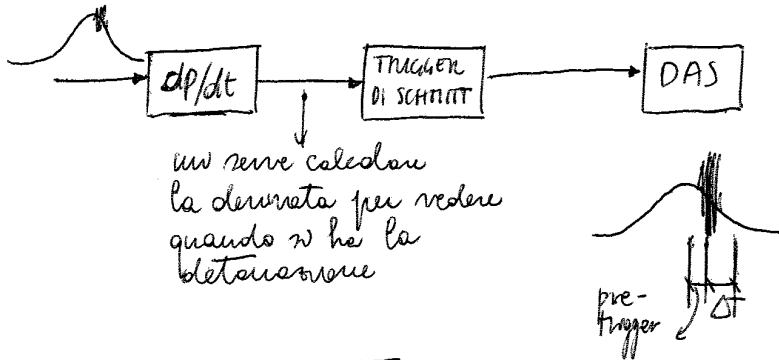 dp/dt
TRIGGER
DI SCHMITT
DAS
mi serve calcolare
la derivata per vedere
quando si ha la
detonazione
pre-
trigger
Δt